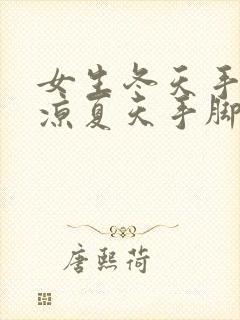 女生冬天手
凉夏天手脚
唐熙荷